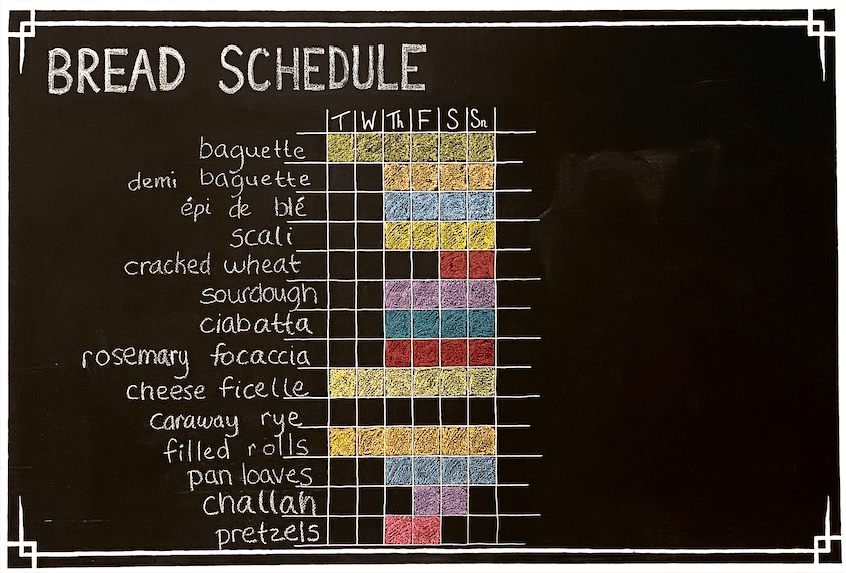 BREAD SCHEDULE
T W Th F S Sn
baguette
demi baguette
épi de blé
scali
cracked wheat
sourdough
ciabatta
rosemary focaccia
cheese ficelle
caraway rye
filled rolls
pan loaves
challah
pretzels